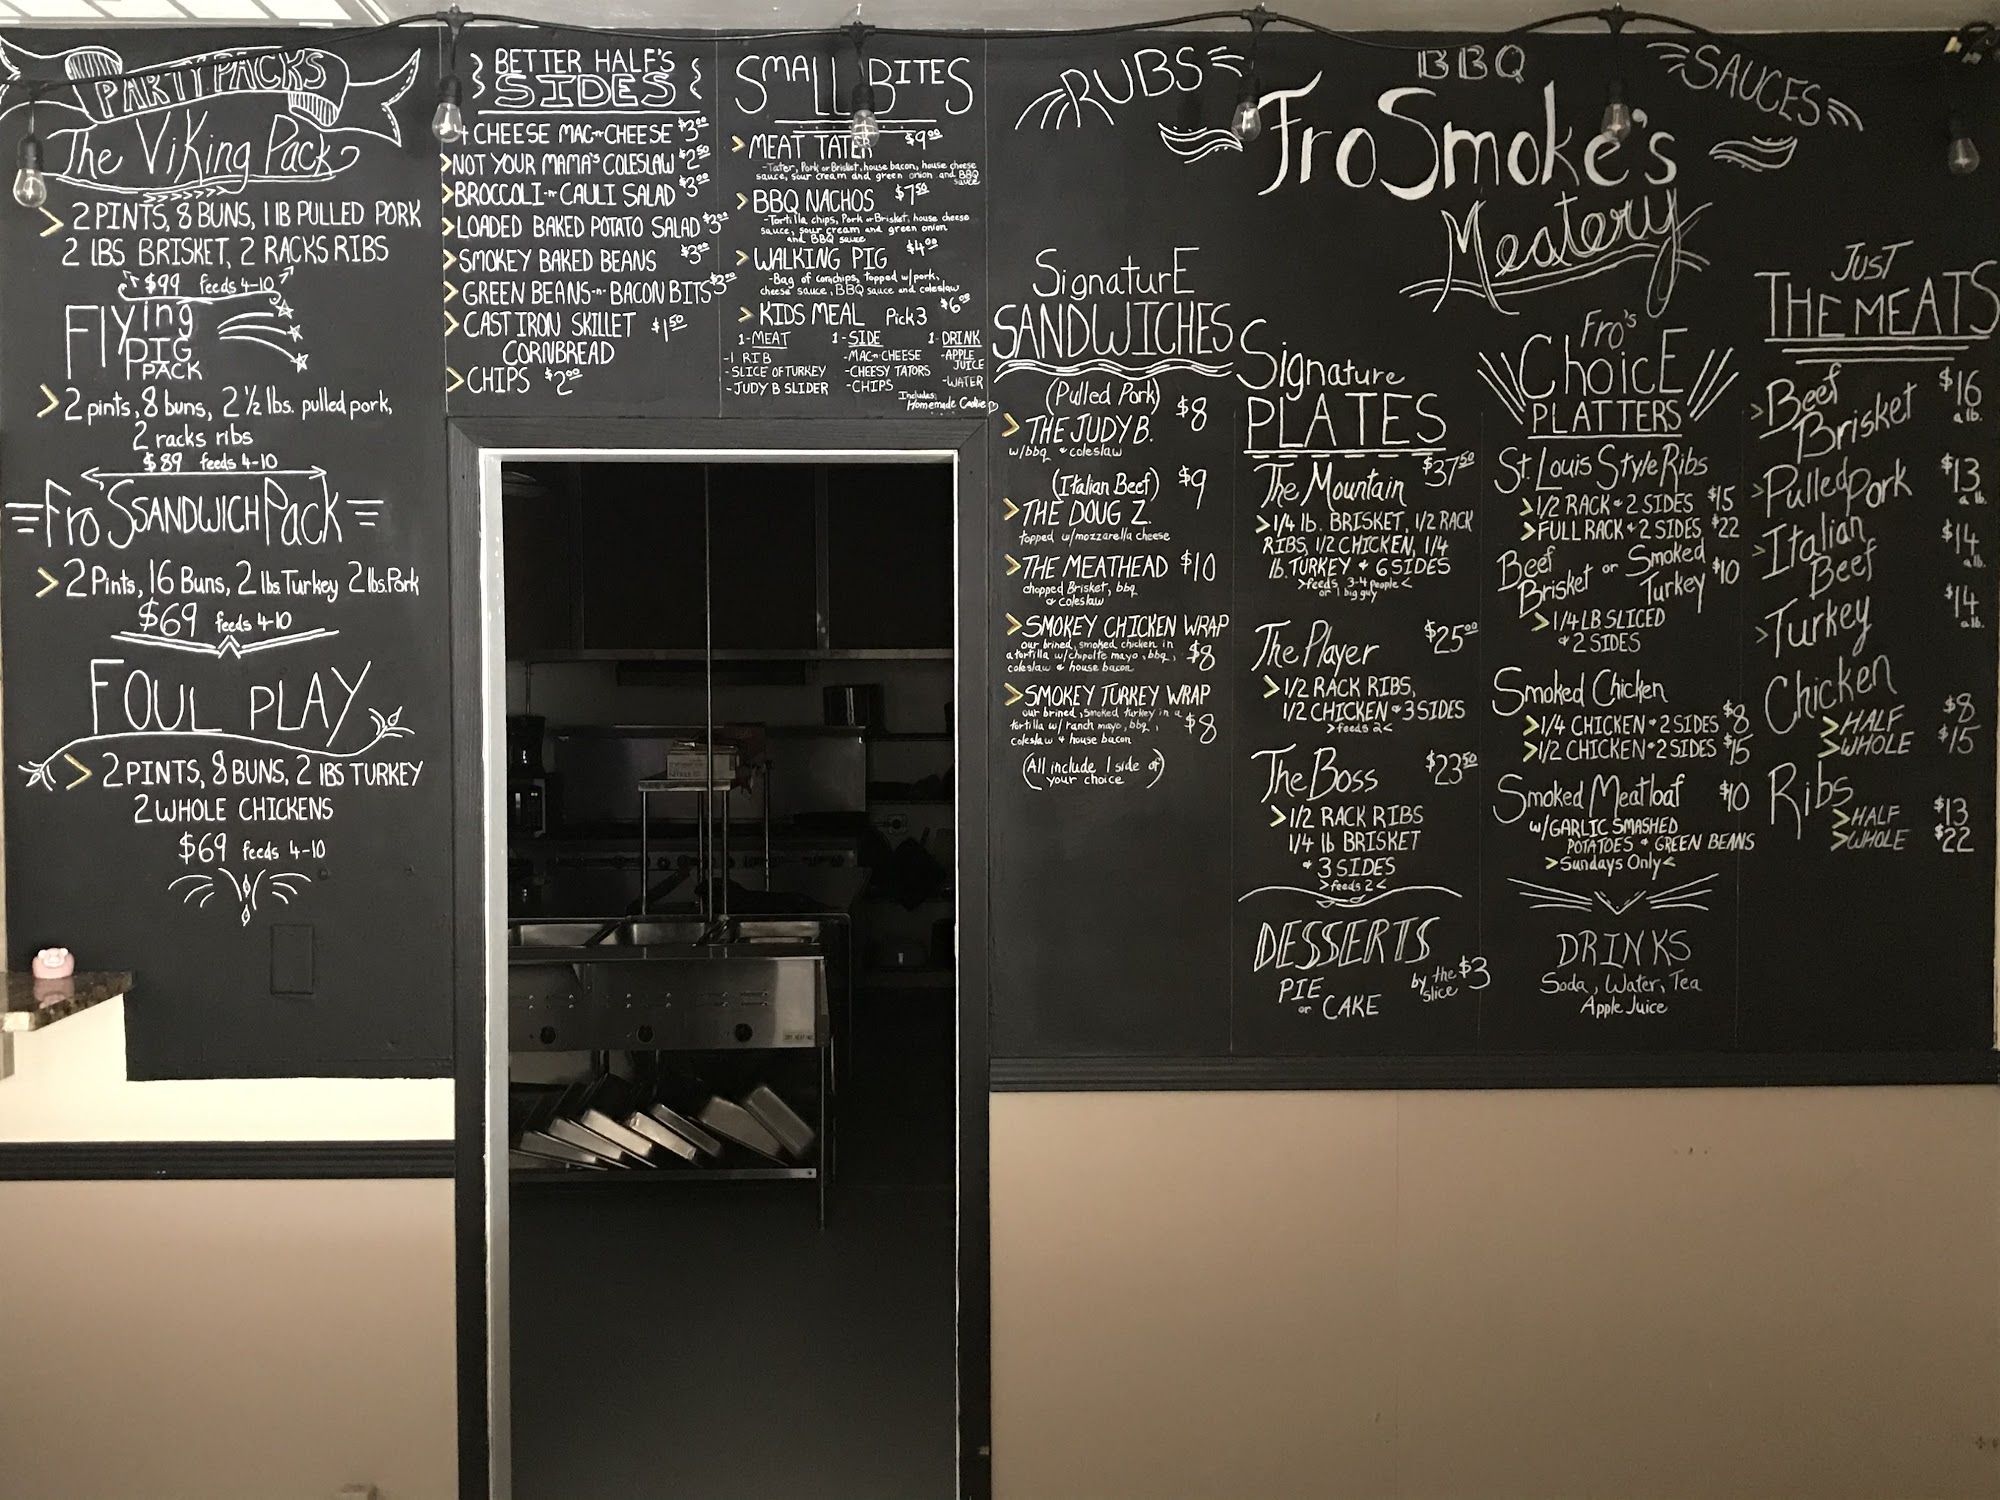 PARTY PACKS
The Viking Pack
2 PINTS, 8 BUNS, 1 lB PULLED PORK
2 lBS BRISKET, 2 RACKS RIBS
$99 feeds 4-10
Flying
PIG
PACK
2 pints, 8 buns, 2 ½ lbs. pulled pork,
2 racks ribs
$89 feeds 4-10
Fro'S SANDWICH Pack
2 Pints, 16 Buns, 2 lbs. Turkey 2 lbs. Pork
$69 feeds 4-10
FOUL PLAY
2 PINTS, 8 BUNS, 2 lBS TURKEY
2 WHOLE CHICKENS
$69 feeds 4-10
BETTER HALF'S
SIDES
4 CHEESE MAC-n-CHEESE $3.00
NOT YOUR MAMA'S COLESLAW $2.50
BROCCOLI-n-CAULI SALAD $3.00
LOADED BAKED POTATO SALAD $3.00
SMOKEY BAKED BEANS $3.00
GREEN BEANS-n-BACON BITS $3.00
CAST IRON SKILLET $1.50
CORNBREAD
CHIPS $2.00
SMALL BITES
MEAT TATER $9.00
-Tater, Pork or Brisket, house bacon, house cheese
sauce, sour cream and green onion and BBQ
sauce
BBQ NACHOS $7.50
-Tortilla chips, Pork or Brisket, house cheese
sauce, sour cream and green onion
and BBQ sauce
WALKING PIG $4.00
-Bag of cornchips, topped w/pork,
cheese sauce, BBQ sauce and coleslaw
KIDS MEAL Pick 3 $6.00
1-MEAT 1-SIDE 1-DRINK
-1 RIB -MAC-n-CHEESE -APPLE JUICE
-SLICE OF TURKEY -CHEESY TATORS -WATER
-JUDY B SLIDER -CHIPS
Includes
Homemade Cookie
RUBS
BBQ
SAUCES
FroSmoke's
Meatery
Signature
SANDWICHES
(Pulled Pork) $8
THE JUDY B.
w/bbq & coleslaw
(Italian Beef) $9
THE DOUG Z.
topped w/mozzarella cheese
THE MEATHEAD $10
chopped Brisket, bbq
& coleslaw
SMOKEY CHICKEN WRAP
our brined, smoked chicken in
a tortilla w/chipolte mayo, bbq, $8
coleslaw & house bacon
SMOKEY TURKEY WRAP
our brined, smoked turkey in a
tortilla w/ ranch mayo, bbq, $8
coleslaw & house bacon
(All include 1 side of
your choice)
Signature
PLATES
The Mountain $37.50
1/4 lb. BRISKET, 1/2 RACK
RIBS, 1/2 CHICKEN, 1/4
lb. TURKEY & 6 SIDES
>feeds 3-4 people<
or 1 big guy
The Player $25.00
1/2 RACK RIBS,
1/2 CHICKEN & 3 SIDES
>feeds 2<
The Boss $23.50
1/2 RACK RIBS
1/4 lb BRISKET
& 3 SIDES
>feeds 2<
DESSERTS
PIE
or CAKE
by the slice $3
Fro's
Choice
PLATTERS
St. Louis Style Ribs
1/2 RACK & 2 SIDES $15
FULL RACK & 2 SIDES $22
Beef Brisket or Smoked Turkey $10
1/4 LB SLICED
& 2 SIDES
Smoked Chicken
1/4 CHICKEN & 2 SIDES $8
1/2 CHICKEN & 2 SIDES $15
Smoked Meatloaf $10
w/GARLIC SMASHED
POTATOES & GREEN BEANS
>Sundays Only<
DRINKS
Soda, Water, Tea
Apple Juice
JUST
THE MEATS
Beef Brisket $16 a lb.
Pulled Pork $13 a lb.
Italian Beef $14 a lb.
Turkey $14 a lb.
Chicken
HALF $8
WHOLE $15
Ribs
HALF $13
WHOLE $22